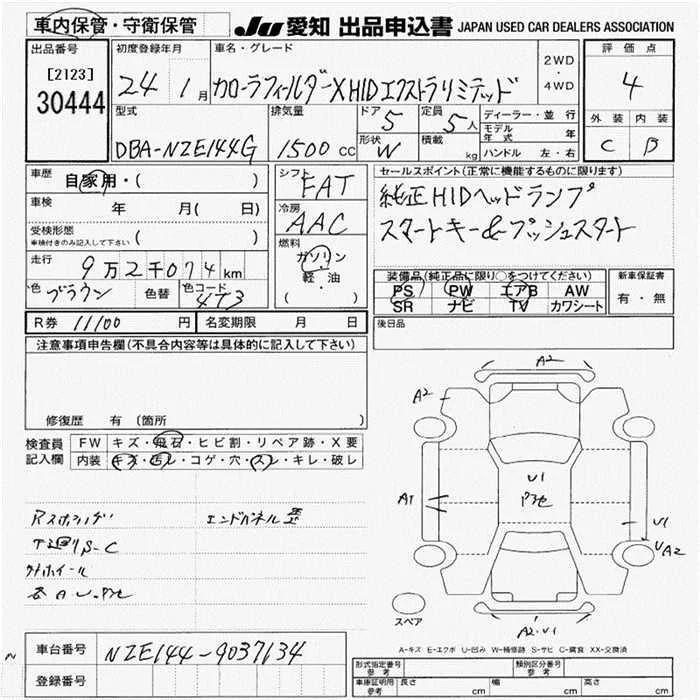 車内保管・守衛保管
JU 愛知 出品申込書 JAPAN USED CAR DEALERS ASSOCIATION
出品番号 初度登録年月 車名・グレード 2WD ・ 4WD 評価点
[2123]
30444
24 1月 カローラフィールダーX HIDエクストラリミテッド 4
型式 排気量 ドア 5 定員 5人 ディーラー・並行 外装 内装
モデル年式 年
DBA-NZE144G 1500cc 形状 W 積載 kg ハンドル 左・右 C B
車歴 自家用・( ) シフト FAT セールスポイント(正常に機能するものに限ります)
車検 年 月( 日) 冷房 AAC 純正HIDヘッドランプ
受検形態 ( ) スタートキー&プッシュスタート
車検付きのみ記入して下さい
燃料 ガソリン・軽・油 ( )
走行 9万2千074km 装備品(純正品に限り○をつけてください) 新車保証書
色 ブラウン 色替 色コード 4T3 PS PW エアB AW 有・無
SR ナビ TV カワシート
R券 11100円 名変期限 月 日 後日品
注意事項申告欄(不具合内容等は具体的に記入して下さい)
修復歴 有 (箇所 )
検査員記入欄 FW キズ・飛石・ヒビ割・リペア跡・X要
内装 キズ・汚レ・コゲ・穴・スレ・キレ・破レ
A2
A2
U1
A1
U1
UA2
A2・U1
下廻りS-C
スペア
A-キズ E-エクボ U-凹み W-補修跡 S-サビ C-腐食 XX-交換済
車台番号 NZE144-9037134
登録番号
形式指定番号 参考 類別区分番号 参考
車庫証明用 参考 長さ cm 幅 cm 高さ cm